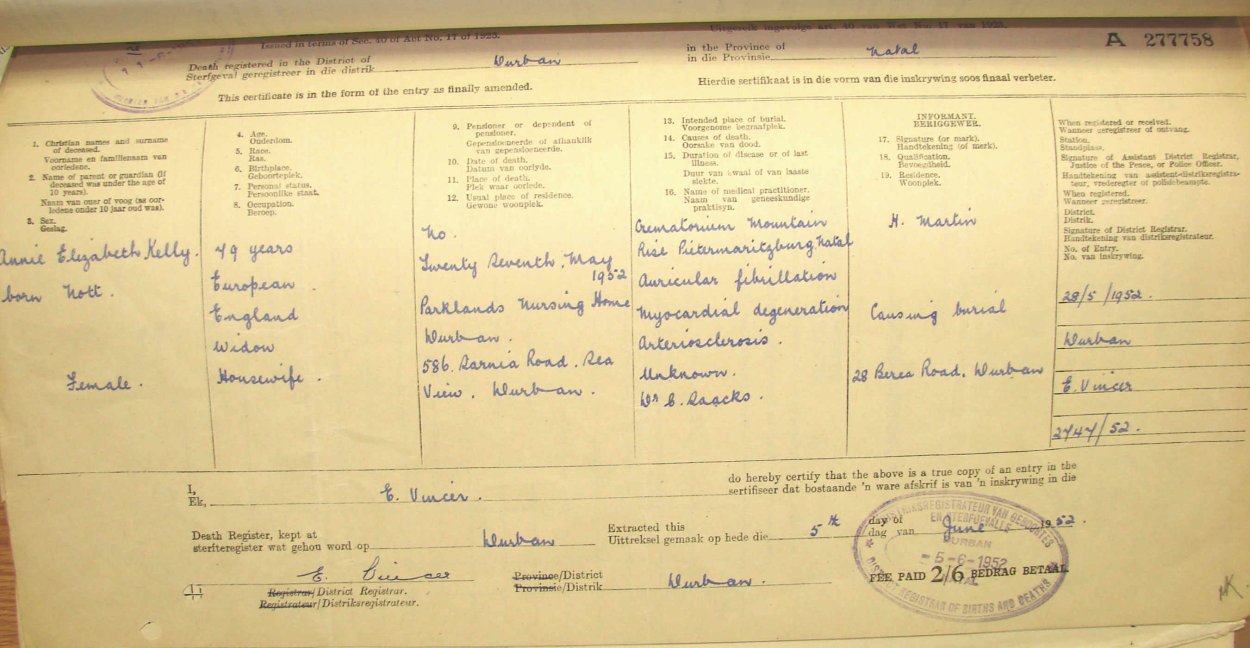 Issued in terms of Sec. 40 of Act No. 17 of 1923.
Uitgereik ingevolge art. 40 van Wet No. 17 van 1923.
A 277758
Death registered in the District of
Sterfgeval geregistreer in die distrik Durban
in the Province of
in die Provinsie Natal
This certificate is in the form of the entry as finally amended.
Hierdie sertifikaat is in die vorm van die inskrywing soos finaal verbeter.
1. Christian names and surname of deceased.
Voorname en familienaam van oorledene.
2. Name of parent or guardian (if deceased was under the age of 10 years).
Naam van ouer of voog (as oorledene onder 10 jaar oud was).
3. Sex.
Geslag.
Annie Elizabeth Kelly.
born Nott.
Female.
4. Age.
Ouderdom.
5. Race.
Ras.
6. Birthplace.
Geboorteplek.
7. Personal status.
Persoonlike staat.
8. Occupation.
Beroep.
79 years
European.
England
Widow
Housewife.
9. Pensioner or dependent of pensioner.
Gepensioeneerde of afhanklik van gepensioeneerde.
10. Date of death.
Datum van oorlyde.
11. Place of death.
Plek waar oorlede.
12. Usual place of residence.
Gewone woonplek.
No.
Twenty Seventh. May
1952
Parklands Nursing Home
Durban.
586. Sarnia Road. Sea
View. Durban.
13. Intended place of burial.
Voorgenome begraafplek.
14. Causes of death.
Oorsake van dood.
15. Duration of disease or of last illness.
Duur van kwaal of van laaste siekte.
16. Name of medical practitioner.
Naam van geneeskundige praktisyn.
Crematorium Mountain
Rise Pietermaritzburg Natal
Auricular fibrillation
Myocardial degeneration
Arteriosclerosis.
Unknown.
Dr C. Saacks.
INFORMANT.
BERIGGEWER.
17. Signature (or mark).
Handtekening (of merk).
18. Qualification.
Bevoegdheid.
19. Residence.
Woonplek.
H. Martin
Causing burial
28 Berea Road. Durban
When registered or received.
Wanneer geregistreer of ontvang.
Station.
Standplaas.
Signature of Assistant District Registrar,
Justice of the Peace, or Police Officer.
Handtekening van assistent-distriksregistrateur, vrederegter of polisiebeampte.
When registered.
Wanneer geregistreer.
District.
Distrik.
Signature of District Registrar.
Handtekening van distriksregistrateur.
No. of Entry.
No. van inskrywing.
28/5/1952.
Durban
E. Vincer
2747/52.
I,
Ek, E. Vincer.
do hereby certify that the above is a true copy of an entry in the
sertifiseer dat bostaande 'n ware afskrif is van 'n inskrywing in die
Death Register, kept at
sterfteregister wat gehou word op Durban
Extracted this
Uittreksel gemaak op hede die 5th
day of
dag van June 1952.
E. Vincer
Registrar/District Registrar.
Registrateur/Distriksregistrateur.
Province/District
Provinsie/Distrik Durban.
FEE PAID 2/6 BEDRAG BETAAL
DISTRIKSREGISTRATEUR VAN GEBOORTES
EN STERFGEVALLE
DURBAN
-5-6-1952
DISTRICT REGISTRAR OF BIRTHS AND DEATHS